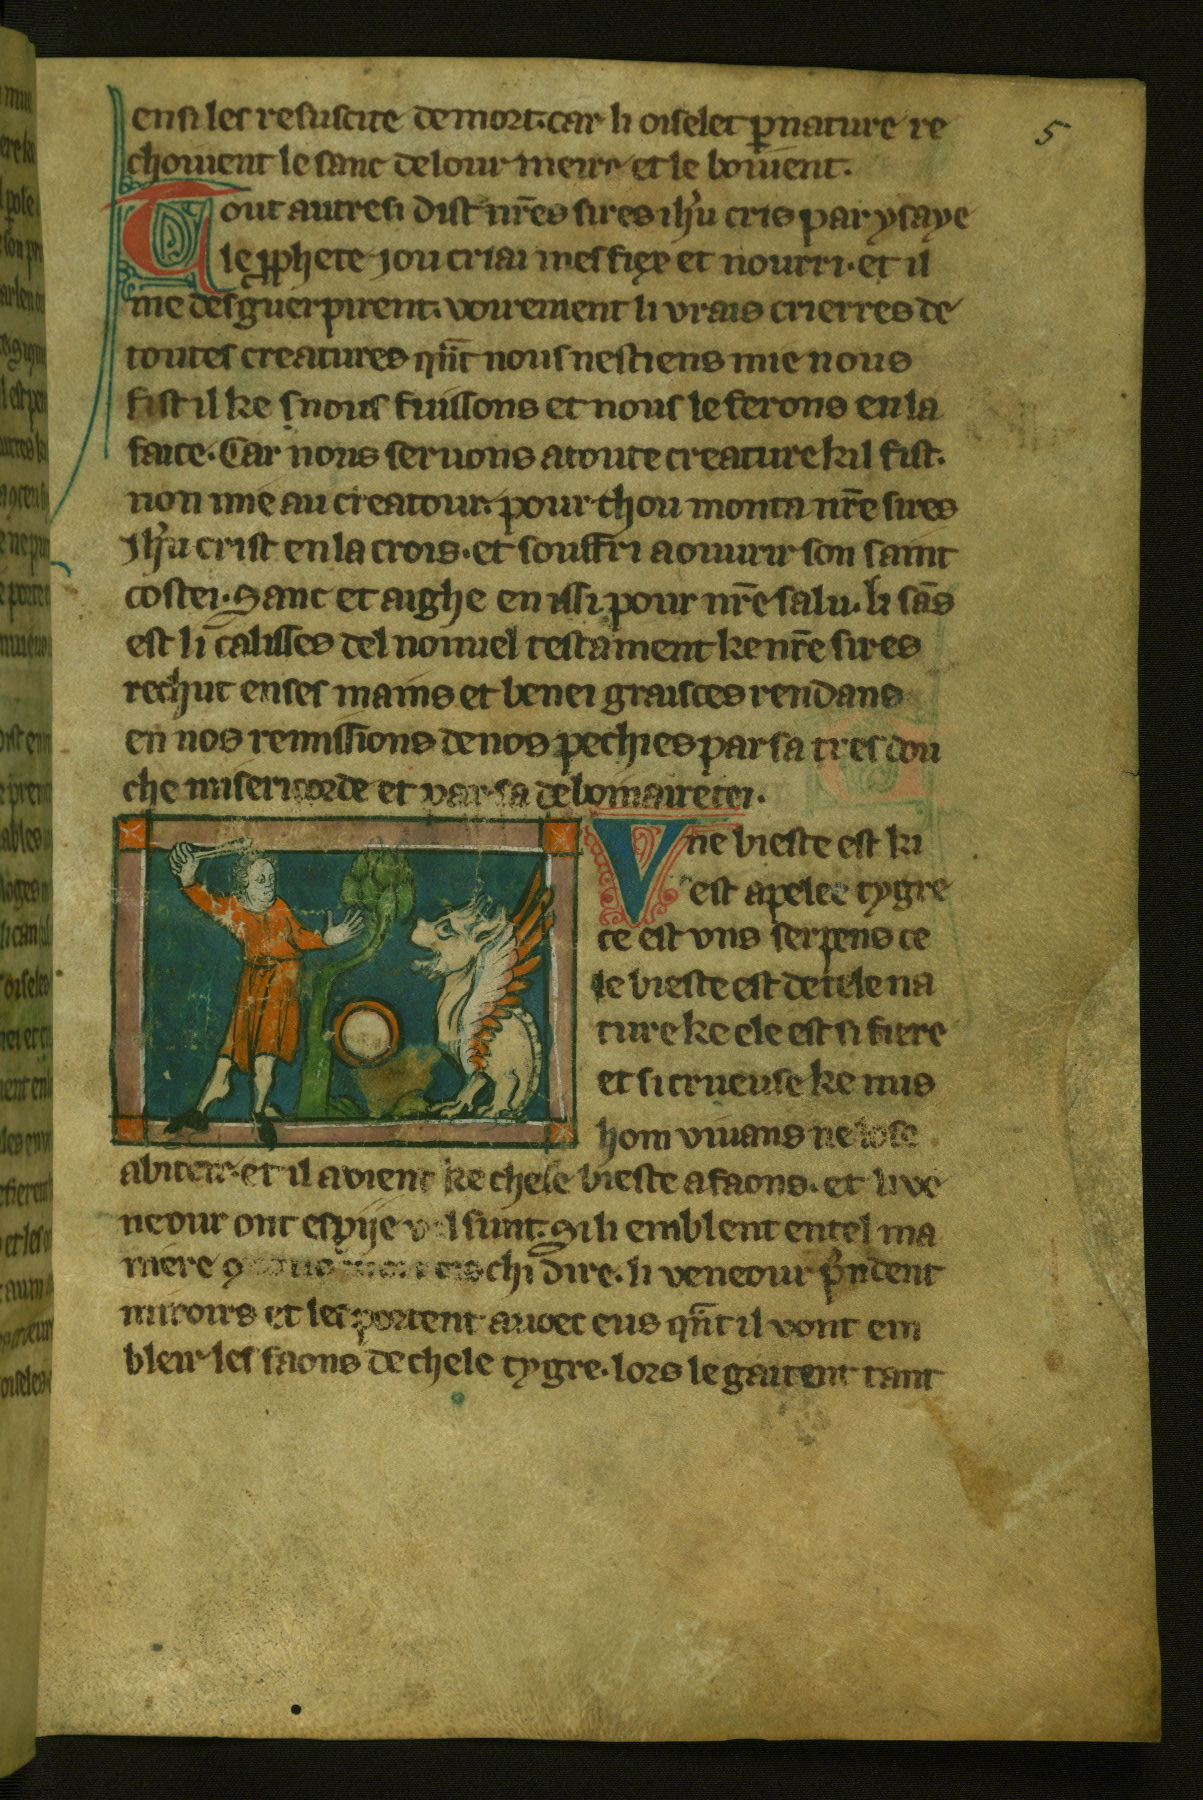 5
ensi les resuscite de mort. car li oiselet p nature re
choiuent le sanc de lour meire et le boiuent.
Tout autresi dist nr̃es sires ih'u cris par ysaye
le pphete jou criai mes fiex et nourri. et il
me desguerpirent. voirement li vrais crierres de
toutes creatures qñt nous nestiens mie nous
fist il ke snous fuissons et nous le ferons en la
faice. Car nous seruons a toute creature kil fist.
non mie au creatour. pour chou monta nr̃e sires
Jh'u crist en la crois. et souffri a ouurir son saint
costei. Sanc et aighe en issi pour nr̃e salu. li sās
est li calisses del nouuel testament ke nr̃e sires
rechut en ses mains et benei graisces rendans
en nos remissions de nos pechies par sa tres dou
che misericorde et par sa debonairetei.
Vne bieste est ki
est apelee tygre
ce est vns serpens ce
le bieste est de tele na
ture ke ele est si fiere
et si crueuse ke nus
hom viuans ne lose
abiter. et il auient ke chele bieste a faons. et li ve
neour ont espije v l sunt. Si li emblent en tel ma
niere chi dire. li veneour p'ndent
miroirs et les portent auoec eus qñt il vont em
bleir les faons de chele tygre. lors le gaitent tant